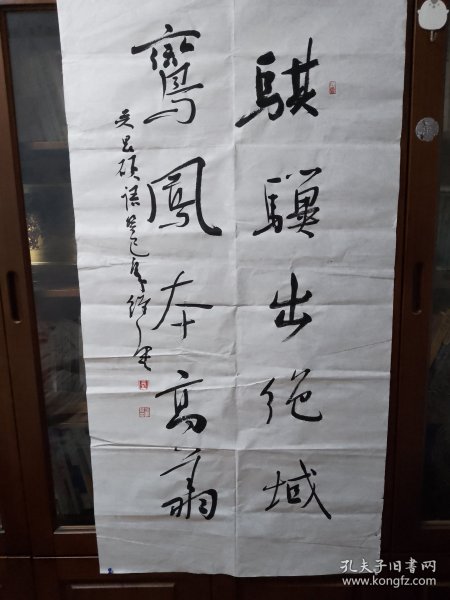 骐骥出绝域
鸾凤本高翥
吴昌硕语
孔夫子旧书网
www.kongfz.com